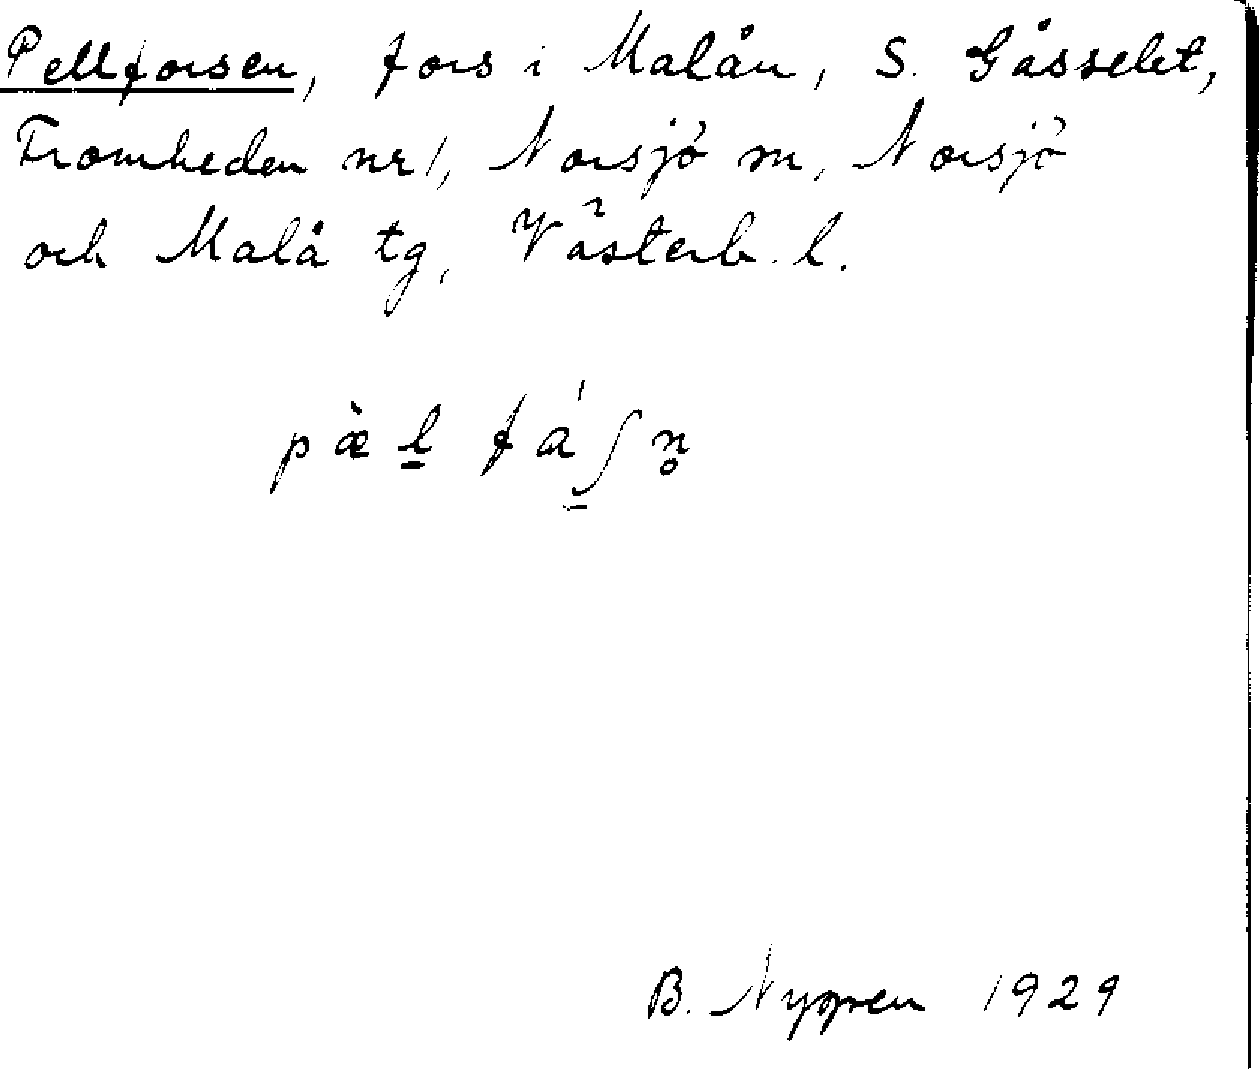 Pellforsen, fors i Malån, S. Gåsselet,
Fromheden nr 1, Norsjö sn, Norsjö
och Malå tg, Västerb. l.
pæ̀l̲ fáʃ̲n̥
B. Nygren 1929